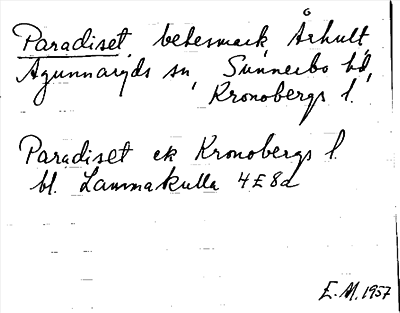 Paradiset, betesmark, Århult,
Agunnaryds sn, Sunnerbo hd,
Kronobergs l.
Paradiset ek Kronobergs l.
bl. Lammakulla 4E8d
E. M. 1957